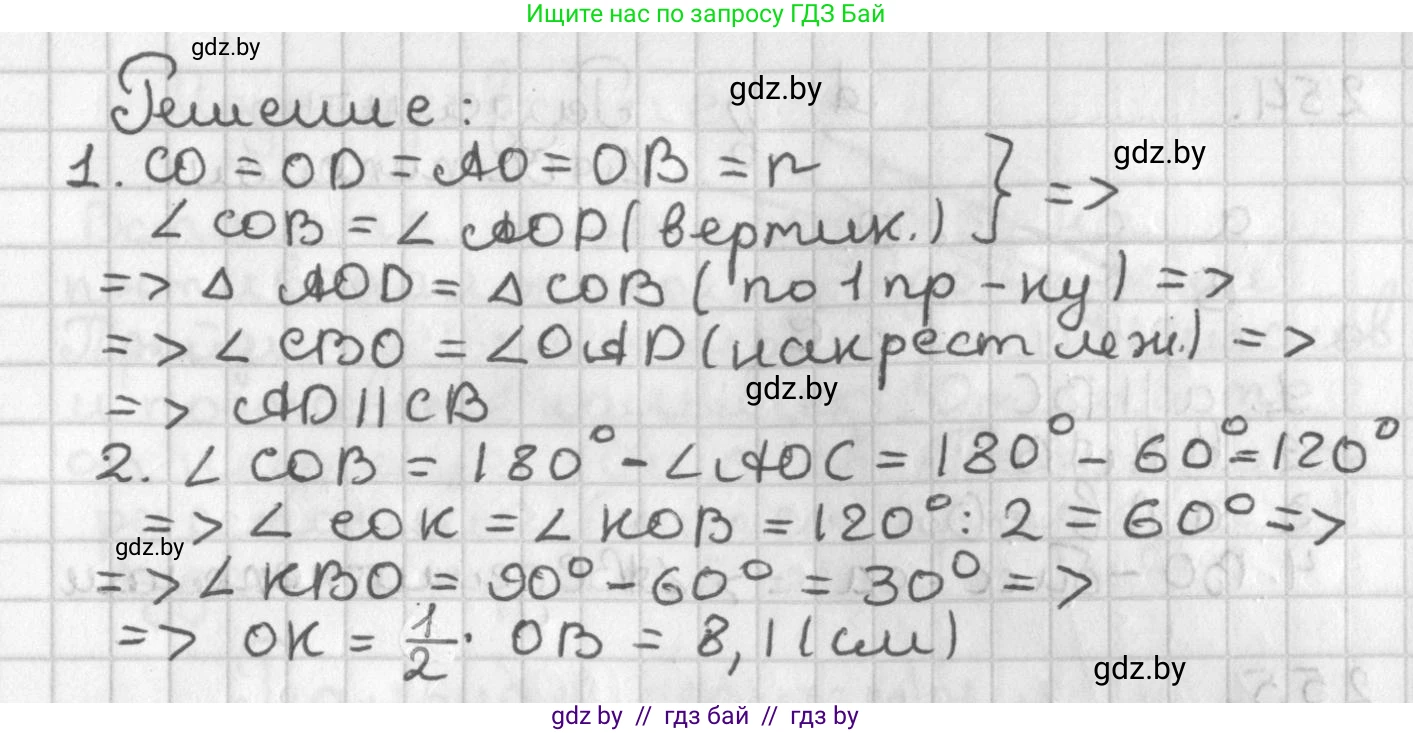 Ищите нас по запросу ГДЗ Бай
gdz.by
Решение:
gdz.by
1. CO = OD = AO = OB = r
gdz.by
∠COB = ∠AOD (вертик.) } =>
=> Δ AOD = Δ COB (по 1 пр-ку) =>
=> ∠CBO = ∠OAD (накрест леж.) =>
gdz.by
=> AD || CB
2. ∠COB = 180° - ∠AOC = 180° - 60° = 120°
=> ∠COK = ∠KOB = 120° : 2 = 60° =>
gdz.by
=> ∠KBO = 90° - 60° = 30° =>
=> OK = 1/2 · OB = 8,1 (см)
gdz.by
gdz.by // гдз бай // gdz.by